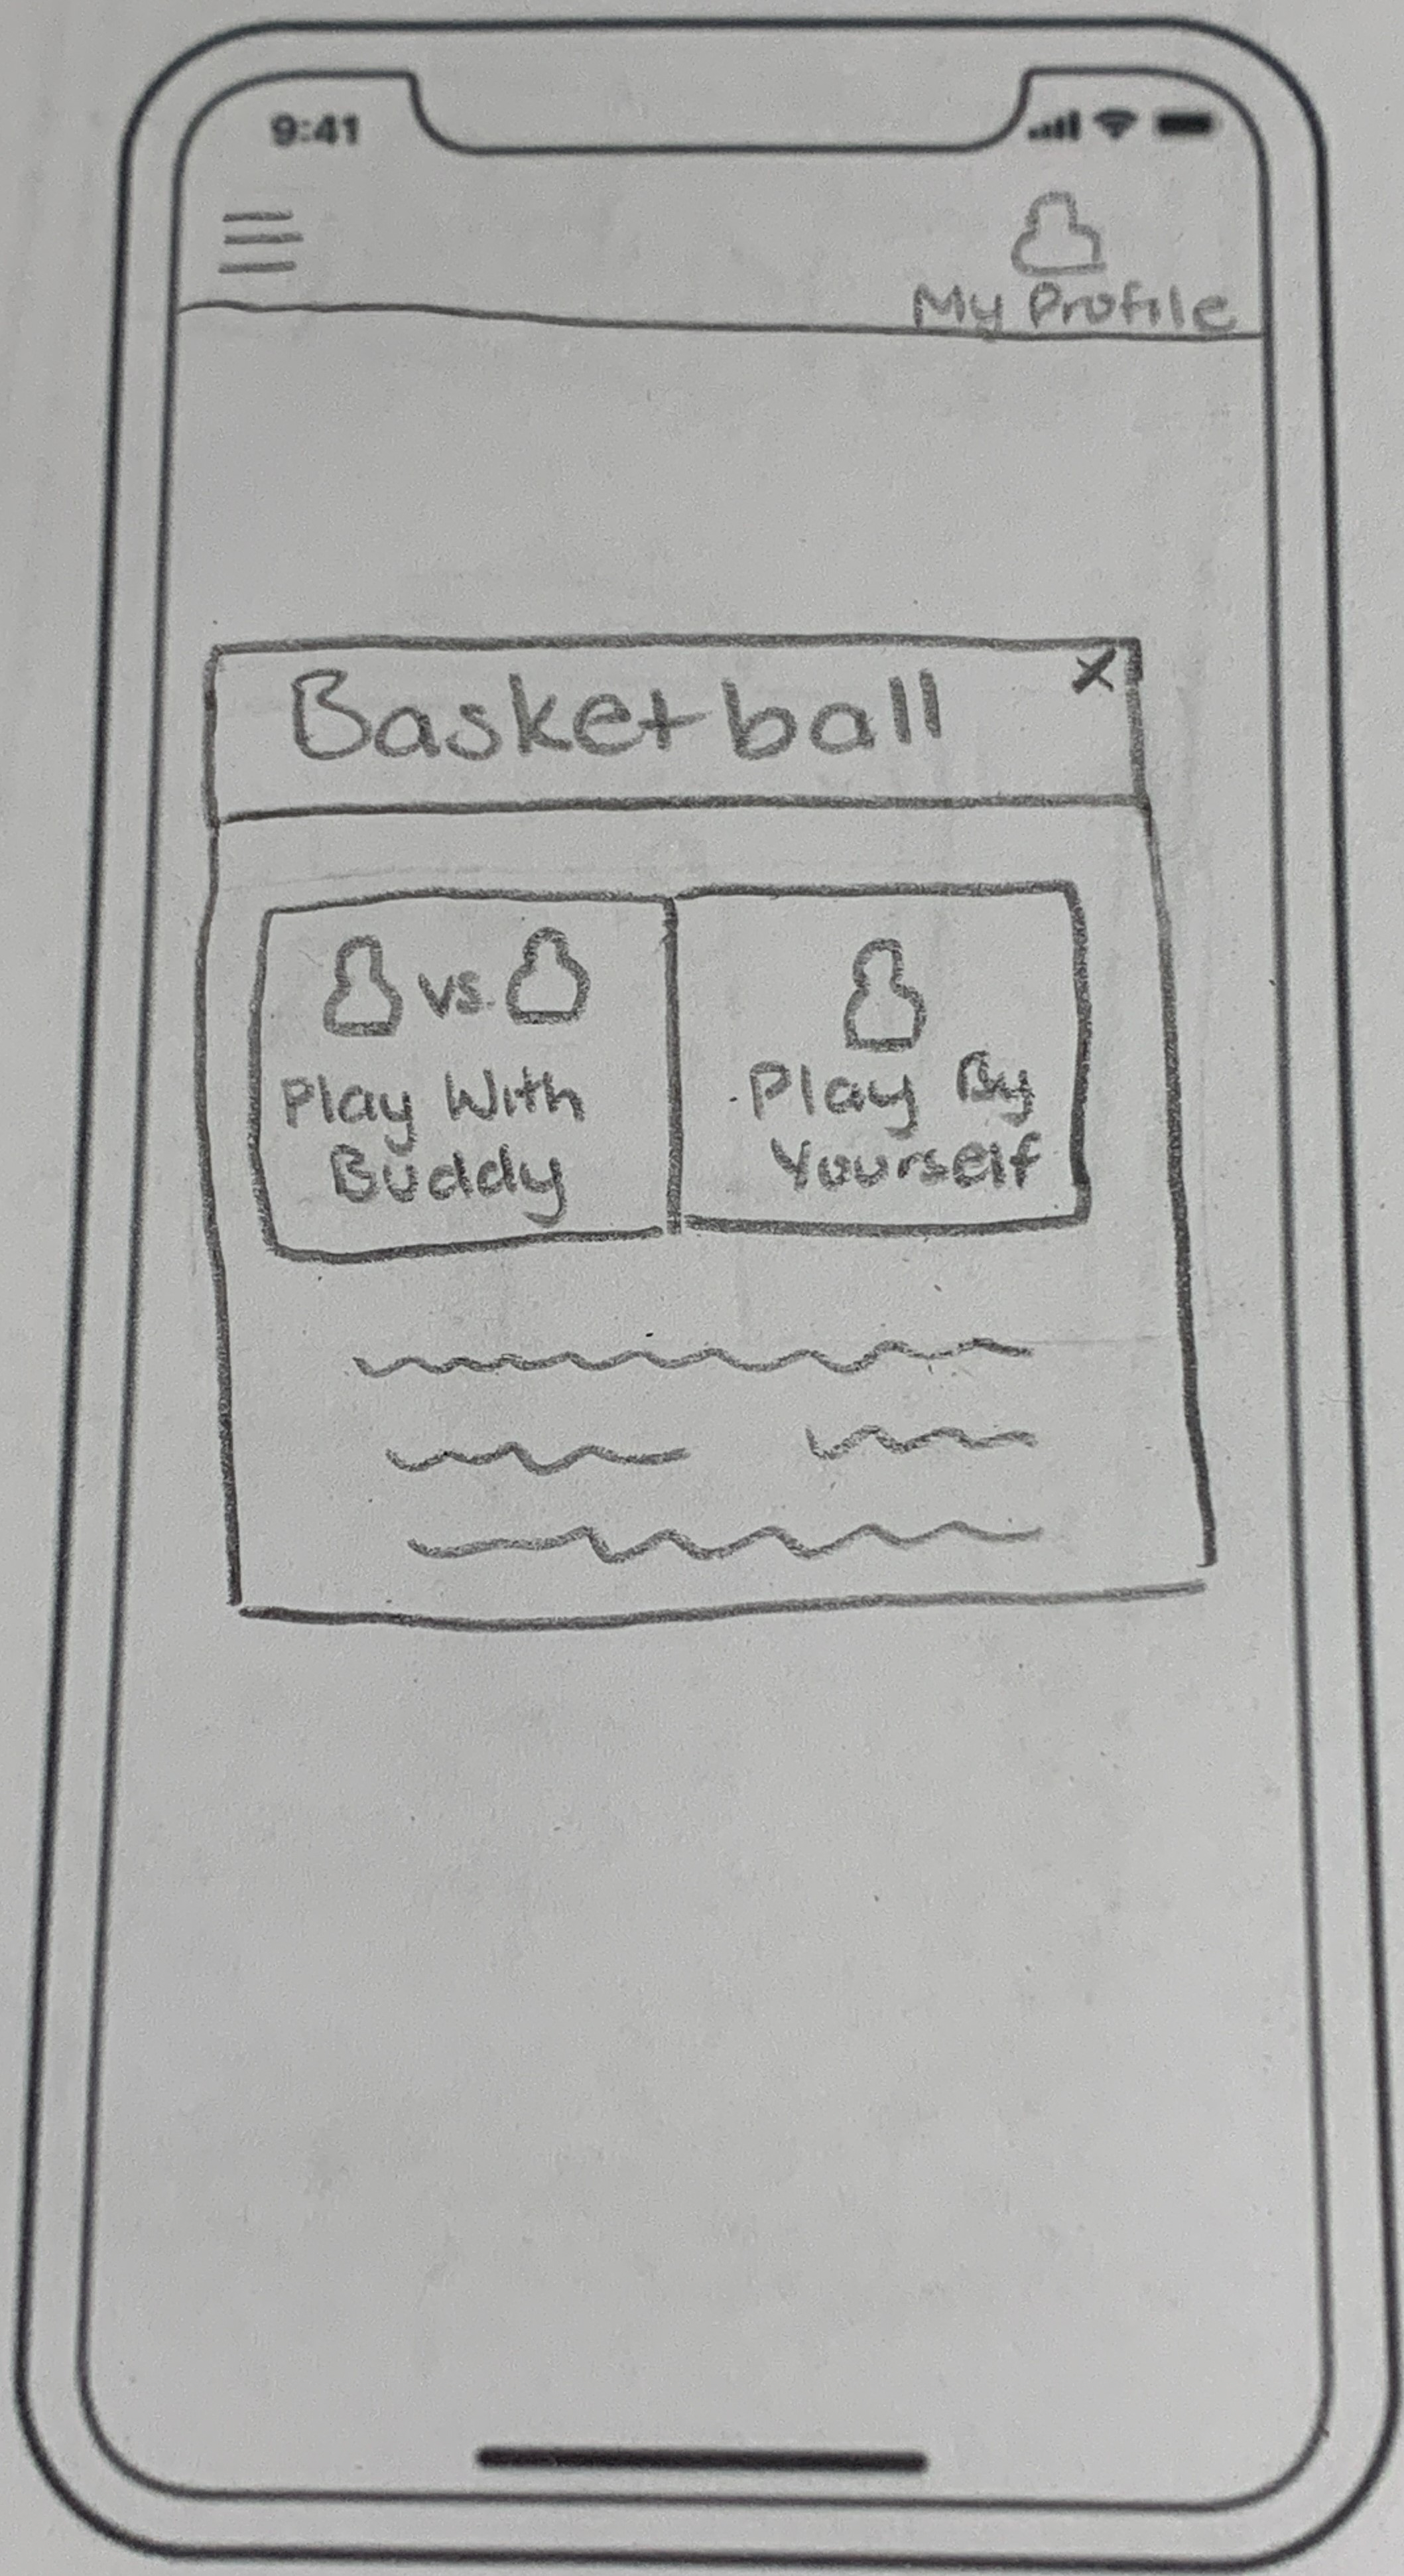 9:41
My Profile
Basketball
X
vs.
Play With
Buddy
Play By
Yourself